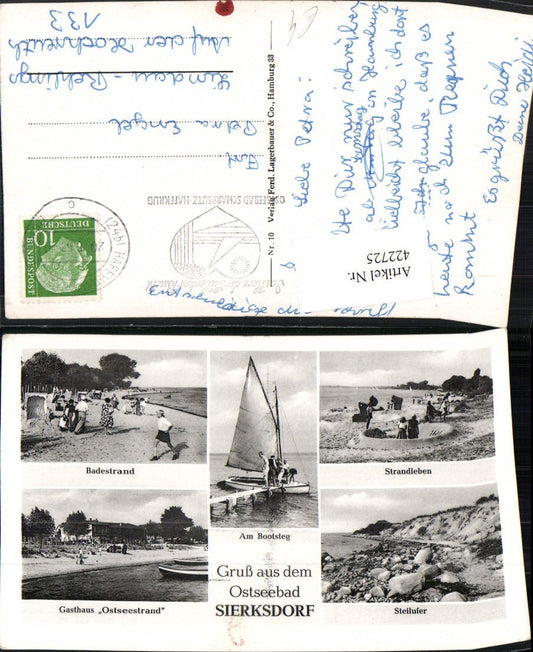 Liebe Petra!
Dir nur schreiben
in Hamburg
Vielleicht bleibe ich dort
Ich glaube, daß es
heute noch zum Regnen
kommt
Es grüßt Dich
Deine Heidi
Entschuldige die
Artikel Nr.
422725
Nr. 10 Verlag Ferd. Lagerbauer & Co., Hamburg 33
OSTSEEBAD SCHARBEUTZ-HAFFKRUG
(24b) HAFFKRUG
DEUTSCHE
BUNDESPOST
10
Petra Engel
Lindau - Rehlings
Auf der Hochreuth
133
Badestrand
Am Bootsteg
Strandleben
Gasthaus „Ostseestrand"
Gruß aus dem
Ostseebad
SIERKSDORF
Steilufer